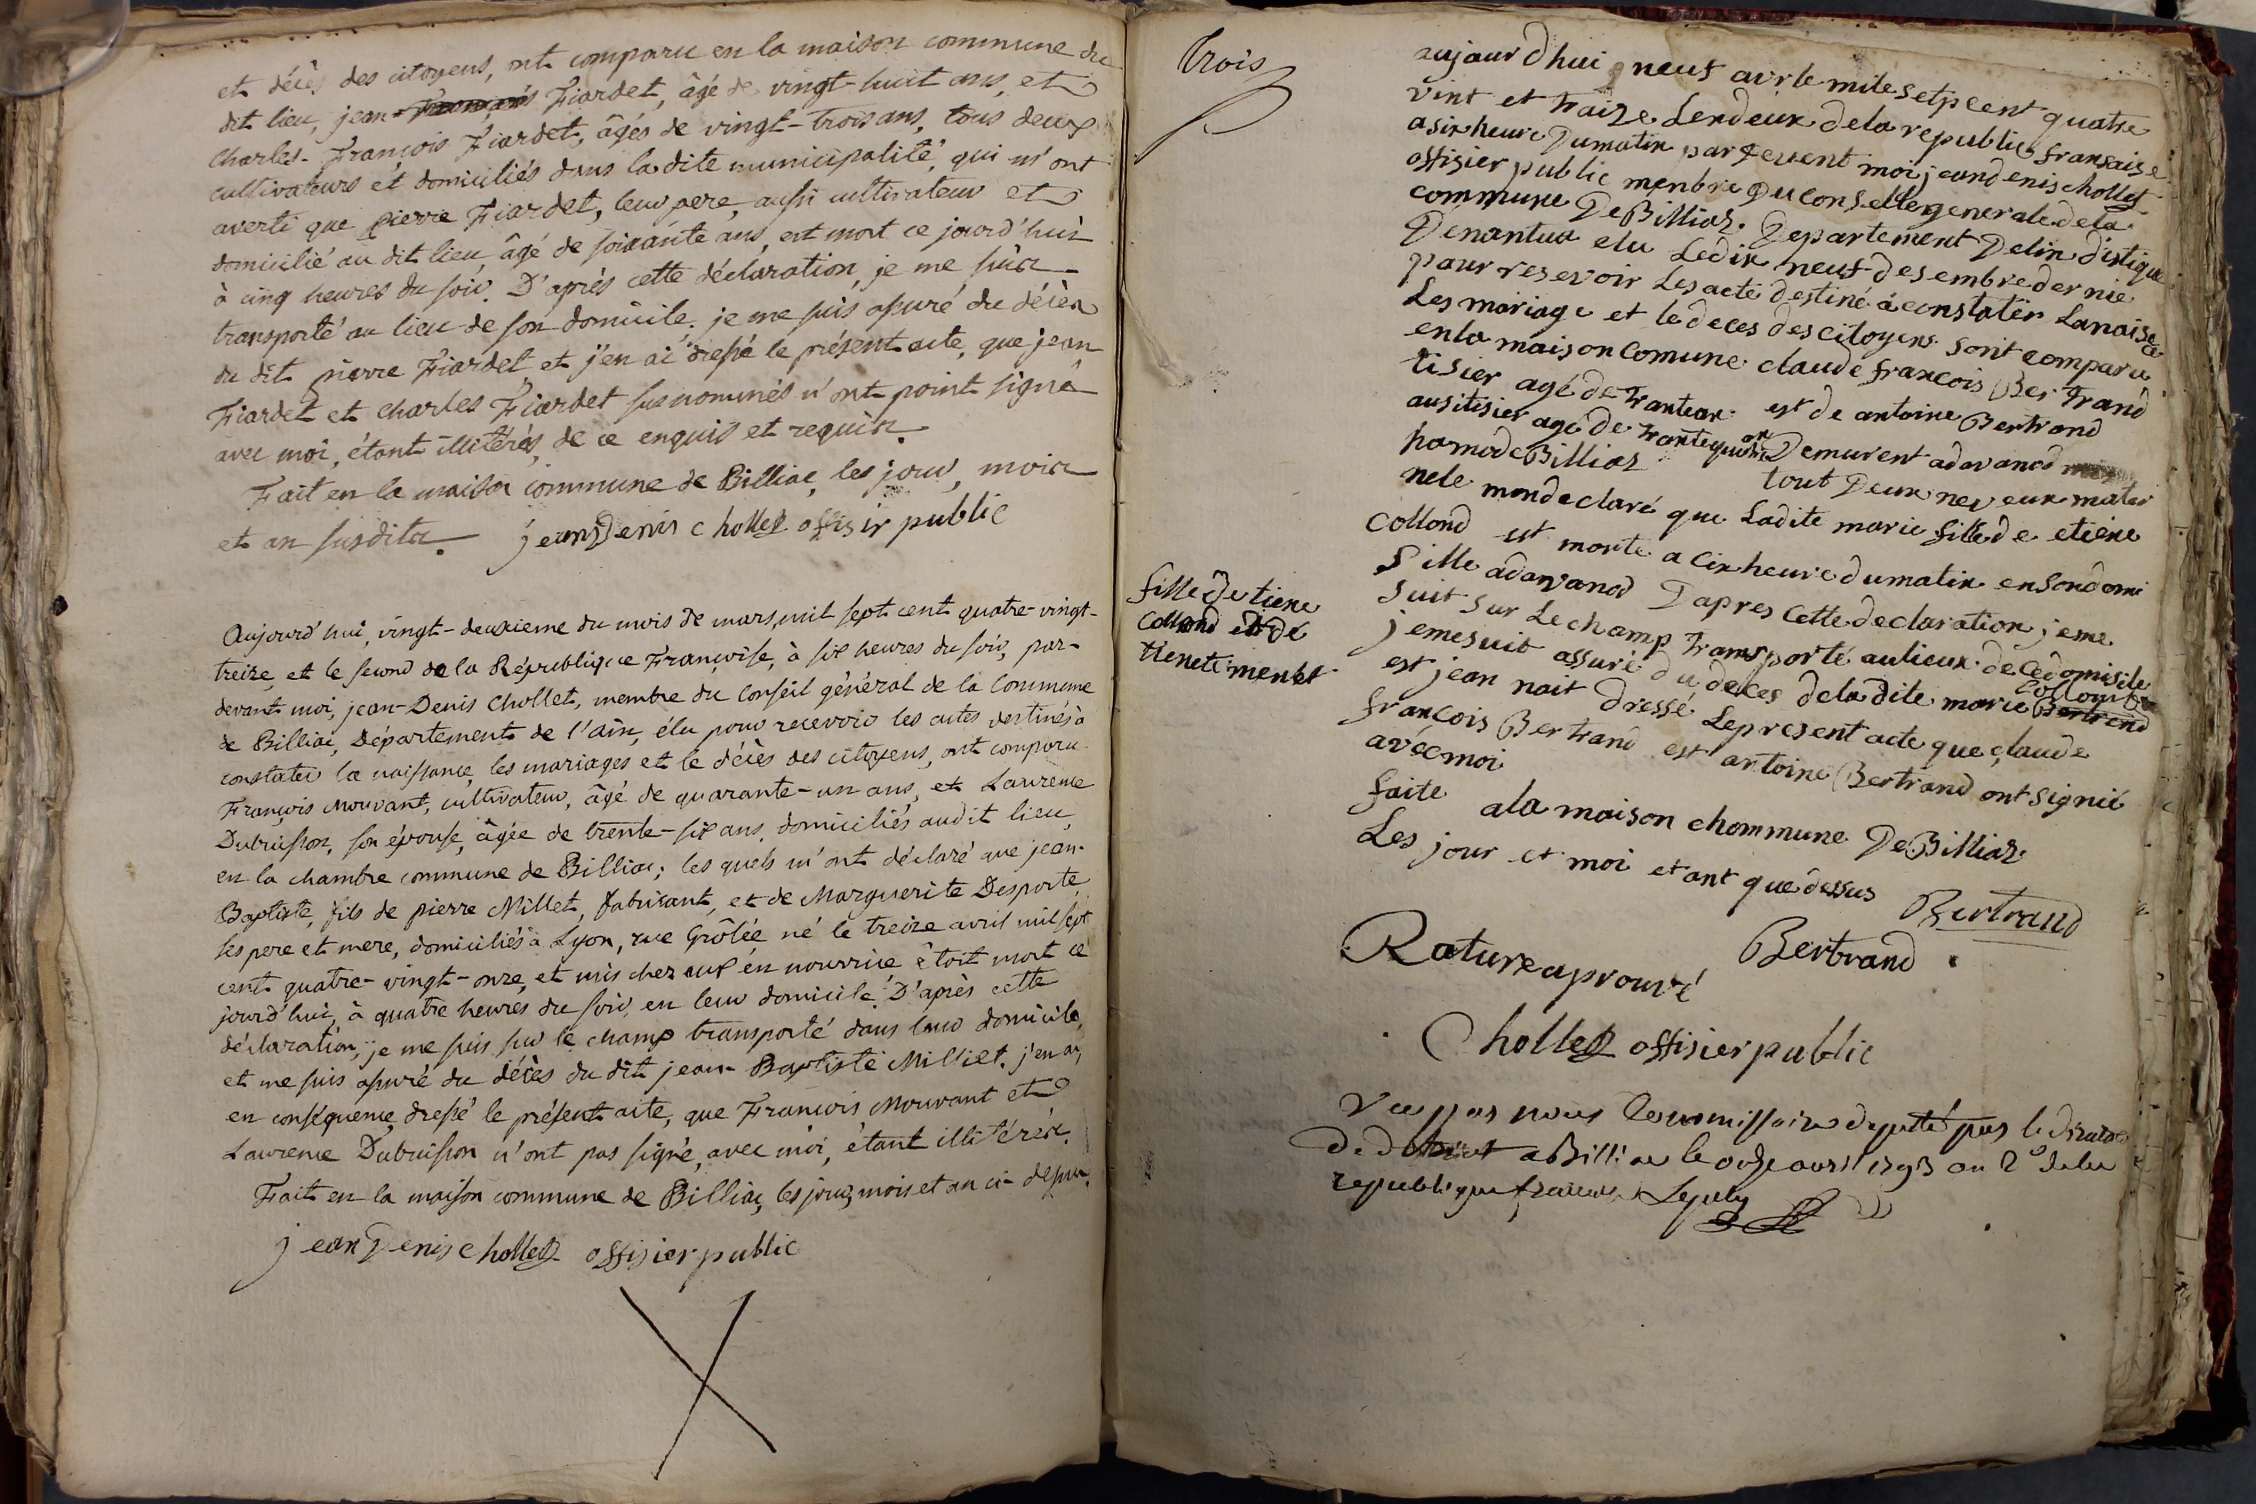 et décès des citoyens, ont comparu en la maison commune du
dit lieu, jean Fiardet, âgé de vingt-huit ans, et
Charles-François Fiardet, âgés de vingt-trois ans, tous deux
cultivateurs et domiciliés dans la dite municipalité, qui m'ont
averti que pierre Fiardet, leur pere, aussi cultivateur et
domicilié au dit lieu, âgé de soixante ans, est mort ce jourd'huis
à cinq heures du soir. D'après cette déclaration, je me suis
transporté au lieu de son domicile. je me suis assuré du décès
du dit pierre Fiardet et j'en ai dressé le présent acte, que jean
Fiardet et charles Fiardet susnommés n'ont point signé
avec moi, étant illitérés, de ce enquis et requis.
Fait en la maison commune de Billiac, les jour, mois
et an susdits. jean Denis chollet offisir public
Aujourd'hui, vingt-deuxieme du mois de mars, mil sept cent quatre-vingt-
treize, et le second de la République Françoise, à six heures du soir, par-
devant moi, jean-Denis Chollet, membre du Conseil général de la Commune
de Billiac, Département de l'ain, élu pour recevoir les actes destinés à
constater la naissance, les mariages et le décès des citoyens, ont comparu
François Mouvant, cultivateur, âgé de quarante-un ans, et Laurence
Dubuisson, son épouse, âgée de trente-six ans, domiciliés audit lieu,
en la chambre commune de Billiac; les quels m'ont déclaré que jean-
Baptiste, fils de pierre Millet, fabricant, et de Marguerite Desporte,
ses pere et mere, domiciliés à Lyon, rue Grôlée né le treize avril mil sept
cent quatre-vingt-onze, et mis chez eux en nourrice étoit mort ce
jourd'hui, à quatre heures du soir, en leur domicile. D'après cette
déclaration, je me suis sur le champ transporté dans leur domicile,
et me suis assuré du décès du dit jean-Baptiste Milliet. j'en ai,
en conséquence, dressé le présent acte, que François Mouvant et
Laurence Dubuisson n'ont pas signé, avec moi, étant illitérés.
Fait en la maison commune de Billiac, les jour, mois et an ci-dessus.
jean Denis chollet offisier public
Trois
aujourdhui neuf avrle mile setpcent quatre
vint et traize Lendeux dela republic fransaise
asix heure Dumatin pardevent moi jeandenis chollet
offisier public menbre Du conselle generale dela
commune De Billiaz. Departement Delin distique
Denantua elu Ledix neuf desembre dernie
paur resevoir Les acte destiné a constater Lanaisce
Les mariage et le deces des citoyens sont comparu
enla maison comune claude francois Bertrand
tisier agé de trantean est de antoine Bertrand
ausitisier agé de trantequatre an Demurent adavanod
hamode Billiaz tout Deux neveux mater
nele mondeclaré que Ladite marie fille de etiene
Collond est morte a cix heure dumatin en sondomi
sille adavanod Dapres cette declaration jeme
suit sur Lechamp transporté aulieux de cedomisile
jemesuit assuré du deces deladite marie Collond Bertrend
est jean nait dressé Lepresent acte que claude
francois Bertrand est antoine Bertrand ont signié
avecmoi
faite ala maison chommune De Billiaz
Les jour et moi et ant que dessus
Bertrand
Bertrand
fille de tiene
Collond et de
tienete menet
Rature aprouvé
Chollet offisier public
Vu par nous Commissaire deputté par le
De district a Billiac le onze avril 1793 an 2e de la
republique francaise